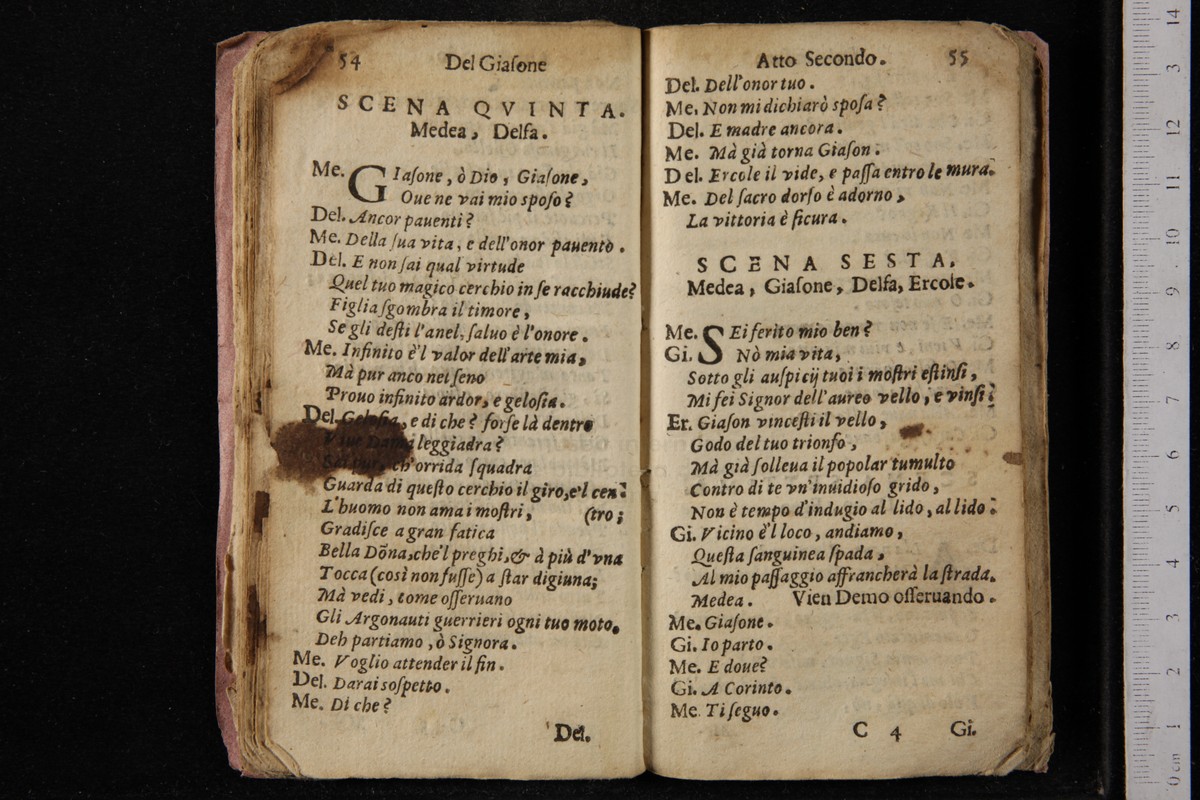 54 Del Giaſone
SCENA QVINTA.
Medea, Delfa.
Me. GIaſone, ò Dio, Giaſone,
Oue ne vai mio spoſo?
Del. Ancor pauenti?
Me. Della ſua vita, e dell'onor pauento.
Del. E non ſai qual virtude
Quel tuo magico cerchio in ſe racchiude?
Figlia ſgombra il timore,
Se gli deſti l'anel, ſaluo è l'onore.
Me. Infinito è'l valor dell'arte mia,
Mà pur anco nel ſeno
Prouo infinito ardor, e geloſia.
Del. Geloſia, e di che? forſe là dentro
leggiadra?
ch'orrida ſquadra
Guarda di queſto cerchio il giro, e'l cen:
L'huomo non ama i moſtri, (tro;
Gradiſce a gran fatica
Bella Dõna, che'l preghi, & à più d'vna
Tocca (così non fuſſe) a ſtar digiuna;
Mà vedi, come oſſeruano
Gli Argonauti guerrieri ogni tuo moto.
Deh partiamo, ò Signora.
Me. Voglio attender il fin.
Del. Darai soſpetto.
Me. Di che?
Del.
Atto Secondo. 55
Del. Dell'onor tuo.
Me. Non mi dichiarò spoſa?
Del. E madre ancora.
Me. Mà già torna Giaſon.
Del. Ercole il vide, e paſſa entro le mura.
Me. Del ſacro dorſo è adorno,
La vittoria è ſicura.
SCENA SESTA.
Medea, Giaſone, Delfa, Ercole.
Me. SEi ferito mio ben?
Gi. Nò mia vita,
Sotto gli auſpicij tuoi i moſtri eſtinſi,
Mi fei Signor dell'aureo vello, e vinſi:
Er. Giaſon vinceſti il vello,
Godo del tuo trionfo,
Mà già ſolleua il popolar tumulto
Contro di te vn'inuidioſo grido,
Non è tempo d'indugio al lido, al lido:
Gi. Vicino è'l loco, andiamo,
Queſta ſanguinea ſpada,
Al mio paſſaggio affrancherà la ſtrada.
Medea. Vien Demo oſſeruando.
Me. Giaſone.
Gi. Io parto.
Me. E doue?
Gi. A Corinto.
Me. Ti ſeguo.
C 4 Gi.
14
3
12
11
10
9
8
7
6
5
4
3
2
1
0 cm